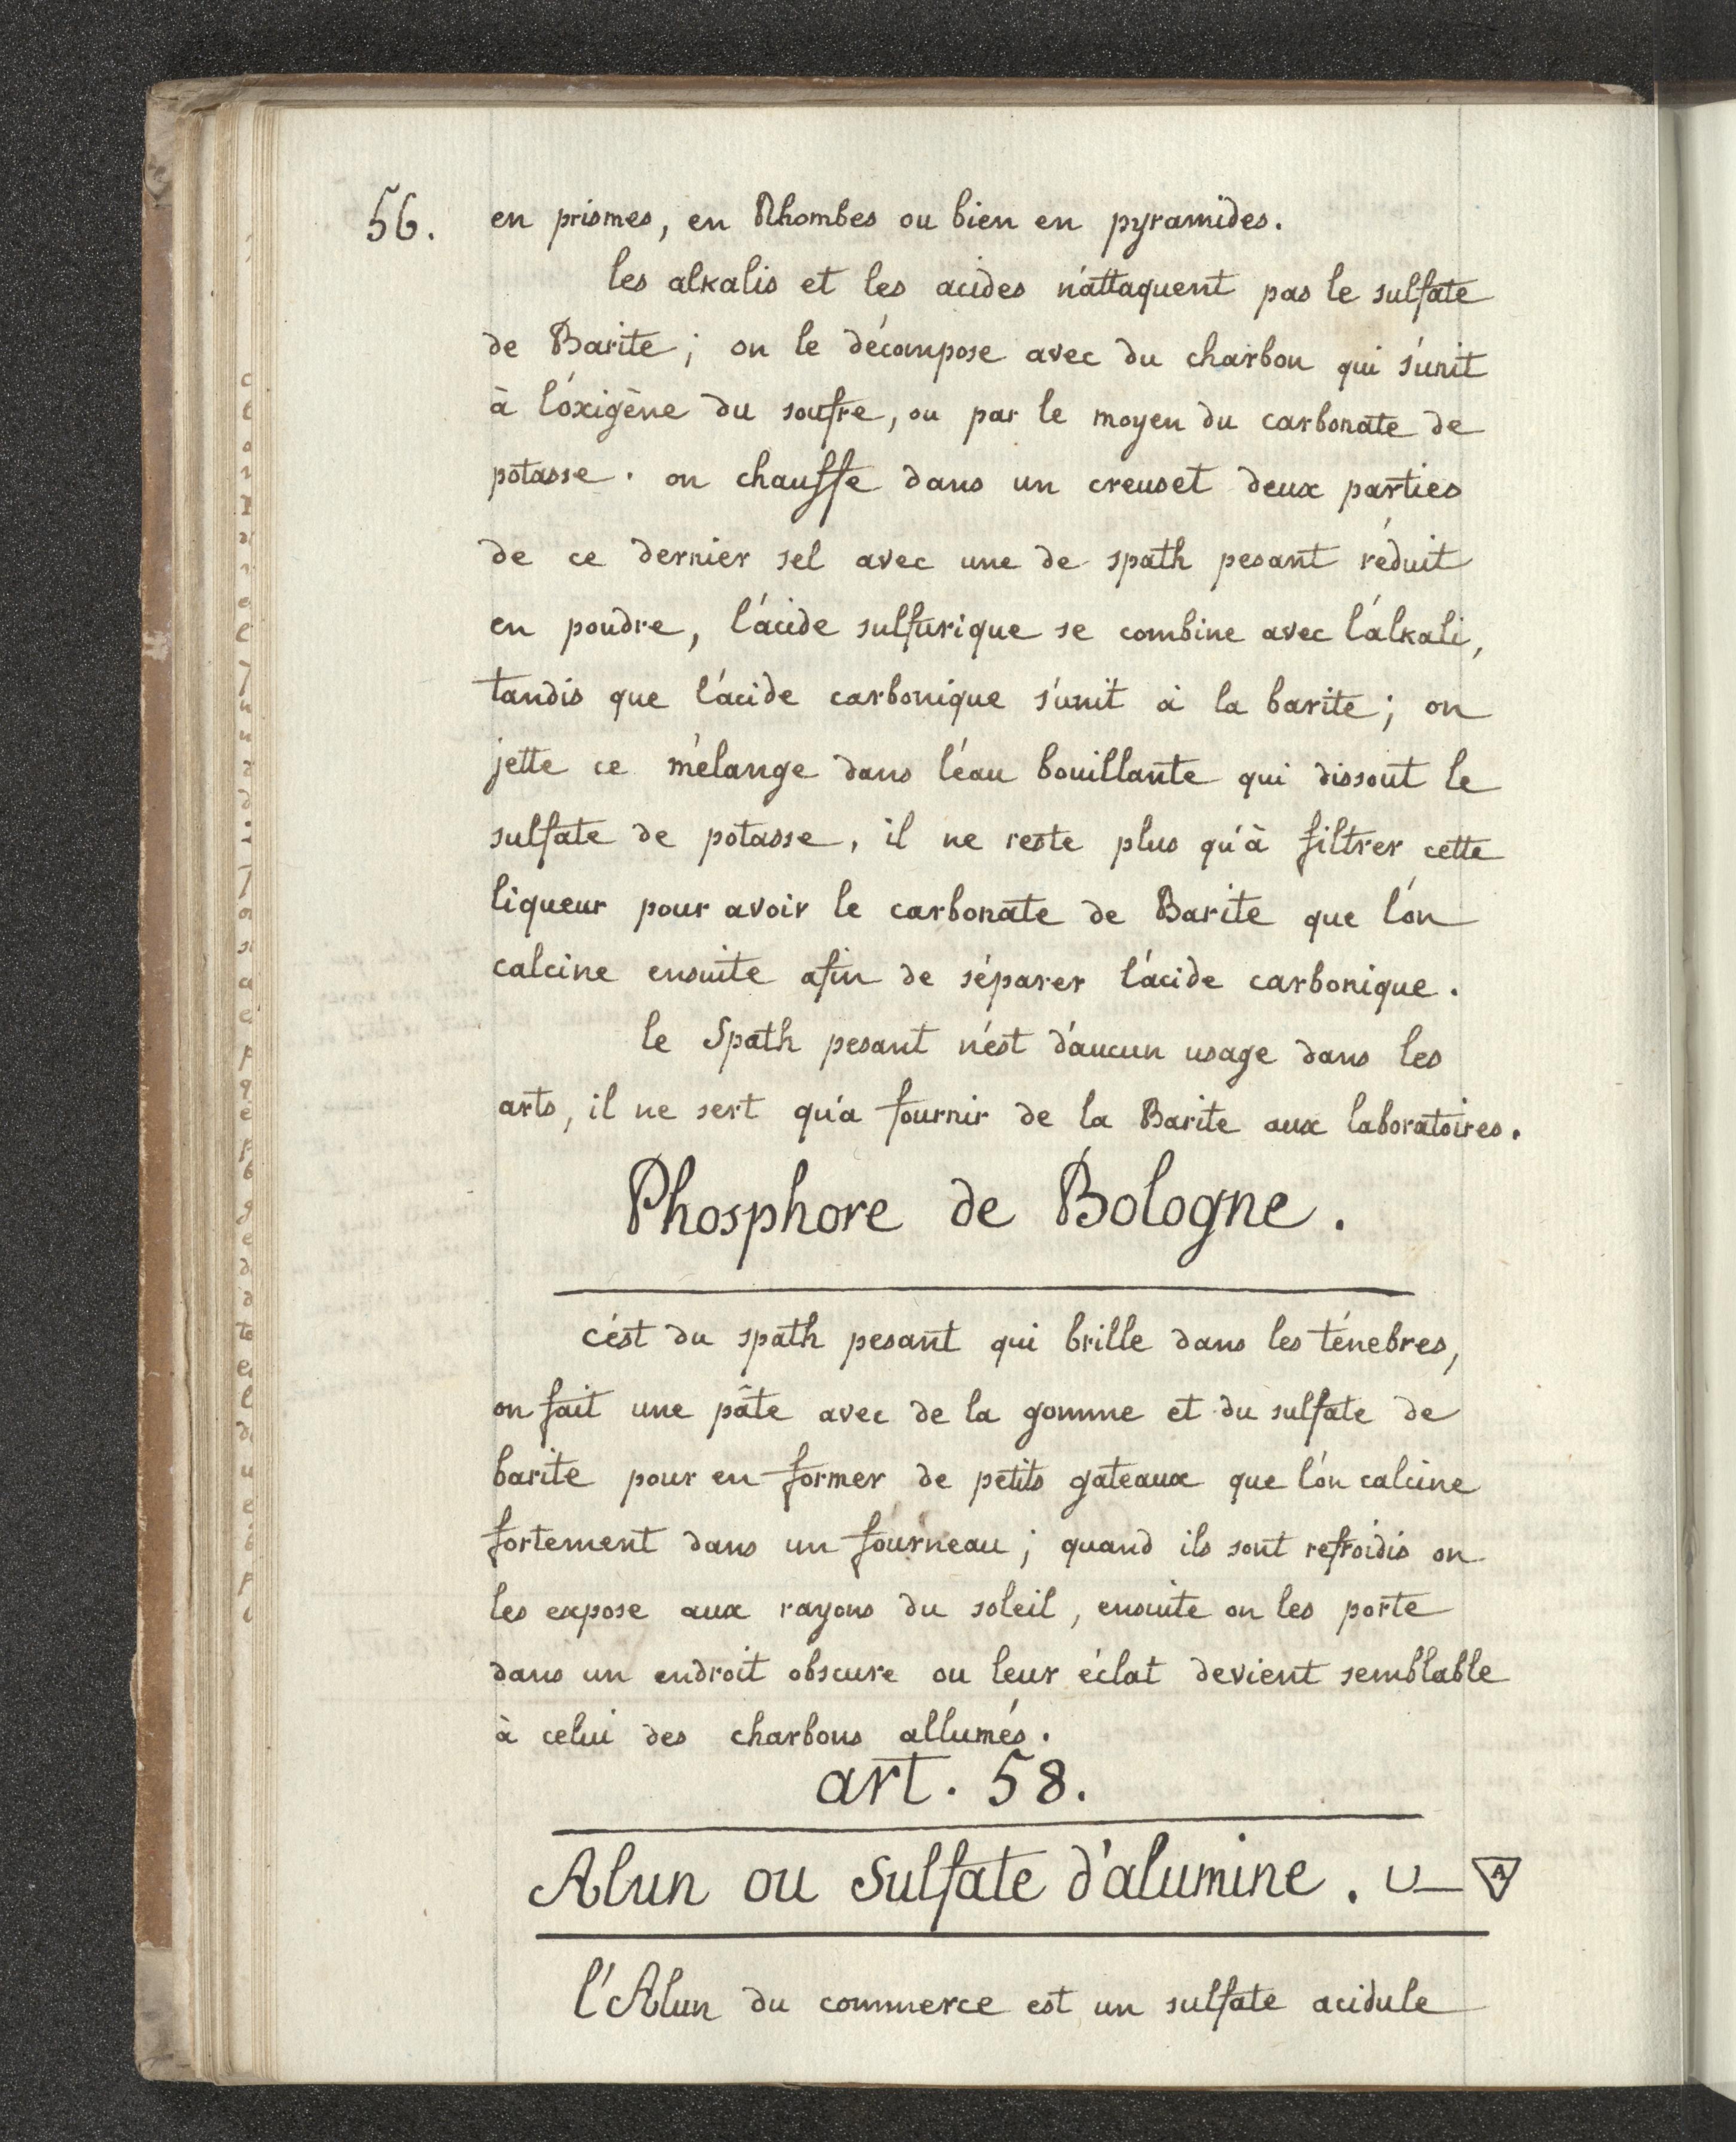 56.
en prismes, en Rhombes ou bien en pyramides.
les alkalis et les acides n'attaquent pas le sulfate
de Barite; on le décompose avec du charbon qui s'unit
à l'oxigène du soufre, ou par le moyen du carbonate de
potasse. on chauffe dans un creuset deux parties
de ce dernier sel avec une de spath pesant réduit
en poudre, l'acide sulfurique se combine avec l'alkali,
tandis que l'acide carbonique s'unit à la barite; on
jette ce mélange dans l'eau bouillante qui dissout le
sulfate de potasse, il ne reste plus qu'à filtrer cette
liqueur pour avoir le carbonate de Barite que l'on
calcine ensuite afin de séparer l'acide carbonique.
le Spath pesant n'est d'aucun usage dans les
arts, il ne sert qu'a fournir de la Barite aux laboratoires.
Phosphore de Bologne.
c'est du spath pesant qui brille dans les ténebres,
on fait une pâte avec de la gomme et du sulfate de
barite pour en former de petits gateaux que l'on calcine
fortement dans un fourneau; quand ils sont refroidis on
les expose aux rayons du soleil, ensuite on les porte
dans un endroit obscure ou leur éclat devient semblable
à celui des charbons allumés.
art. 58.
Alun ou Sulfate d'alumine. A
l'Alun du commerce est un sulfate acidule